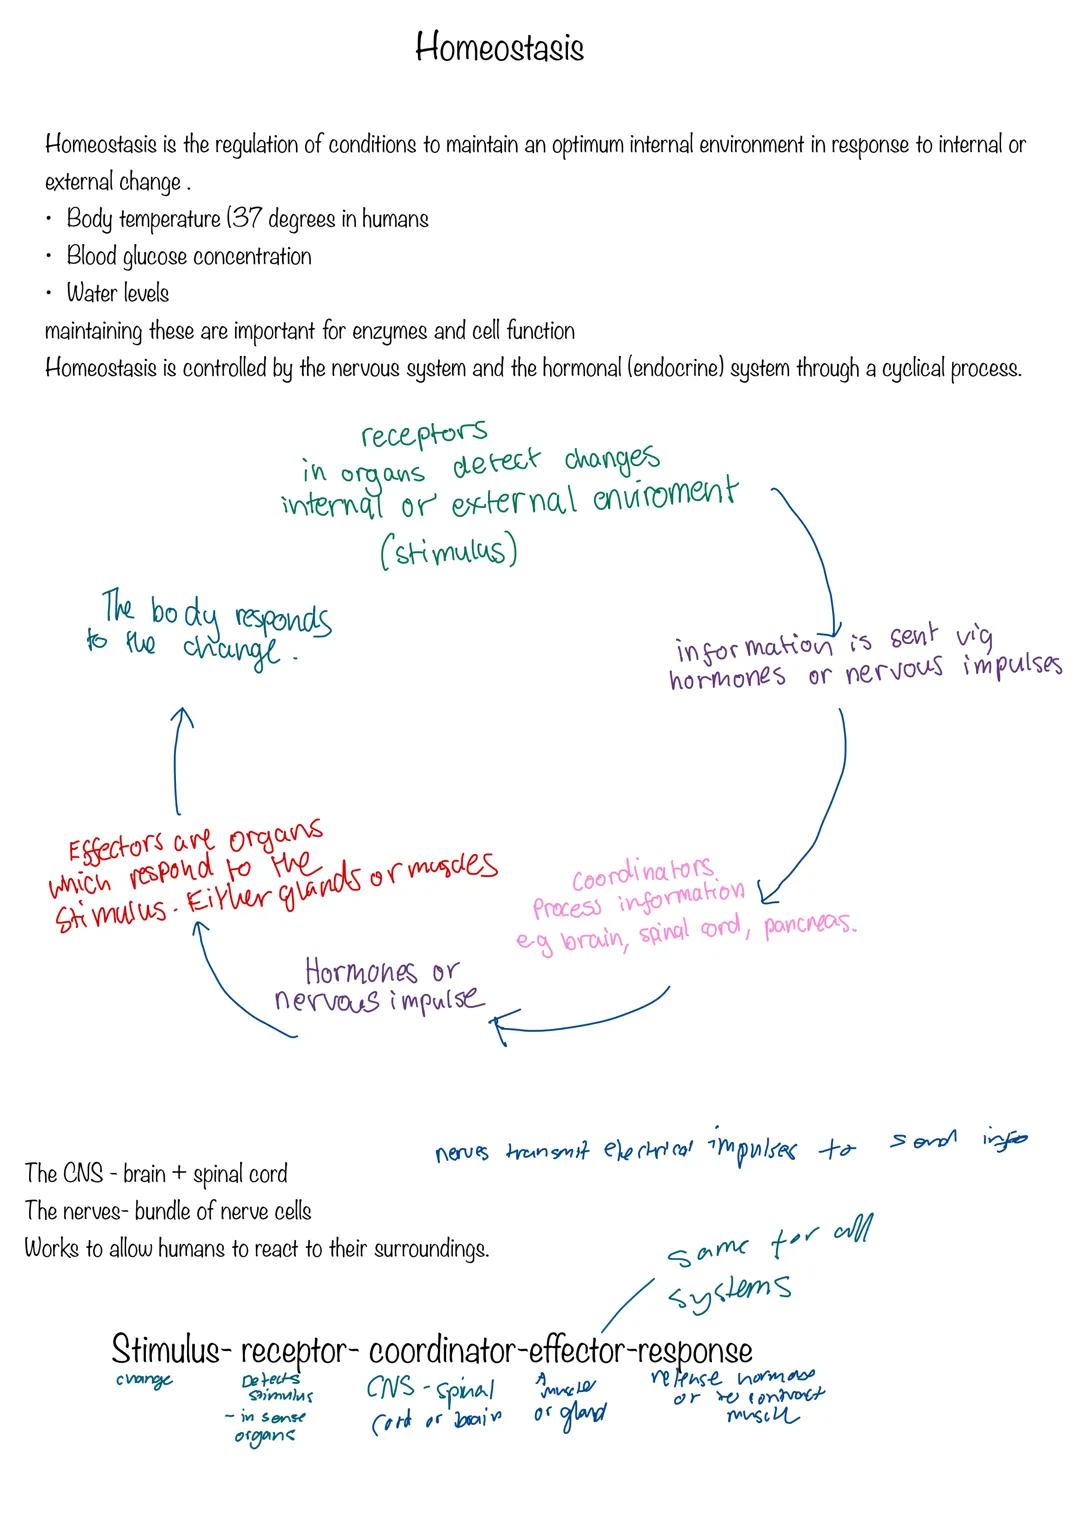 Homeostasis
Homeostasis is the regulation of conditions to maintain an optimum internal environment in response to internal or
external change .
• Body temperature (37 degrees in humans
• Blood glucose concentration
• Water levels
maintaining these are important for enzymes and cell function
Homeostasis is controlled by the nervous system and the hormonal (endocrine) system through a cyclical process.
receptors
in organs detect changes
internal or external enviroment
(stimulus)
The body responds
to the change.
information is sent via
hormones or nervous impulses
Effectors are organs
which respond to the
Stimulus. Either glands or muscles
Coordinators
Process information
e.g brain, spinal cord, pancreas.
Hormones or
nervous impulse
nerves transmit electrical impulses to send info
The CNS - brain + spinal cord
The nerves- bundle of nerve cells
Works to allow humans to react to their surroundings.
same for all
systems
Stimulus- receptor- coordinator-effector-response
change
Detects
stimulus
- in sense
organs
CNS - spinal
cord or brain
A
muscle
or gland
release hormone
or contract
muscle